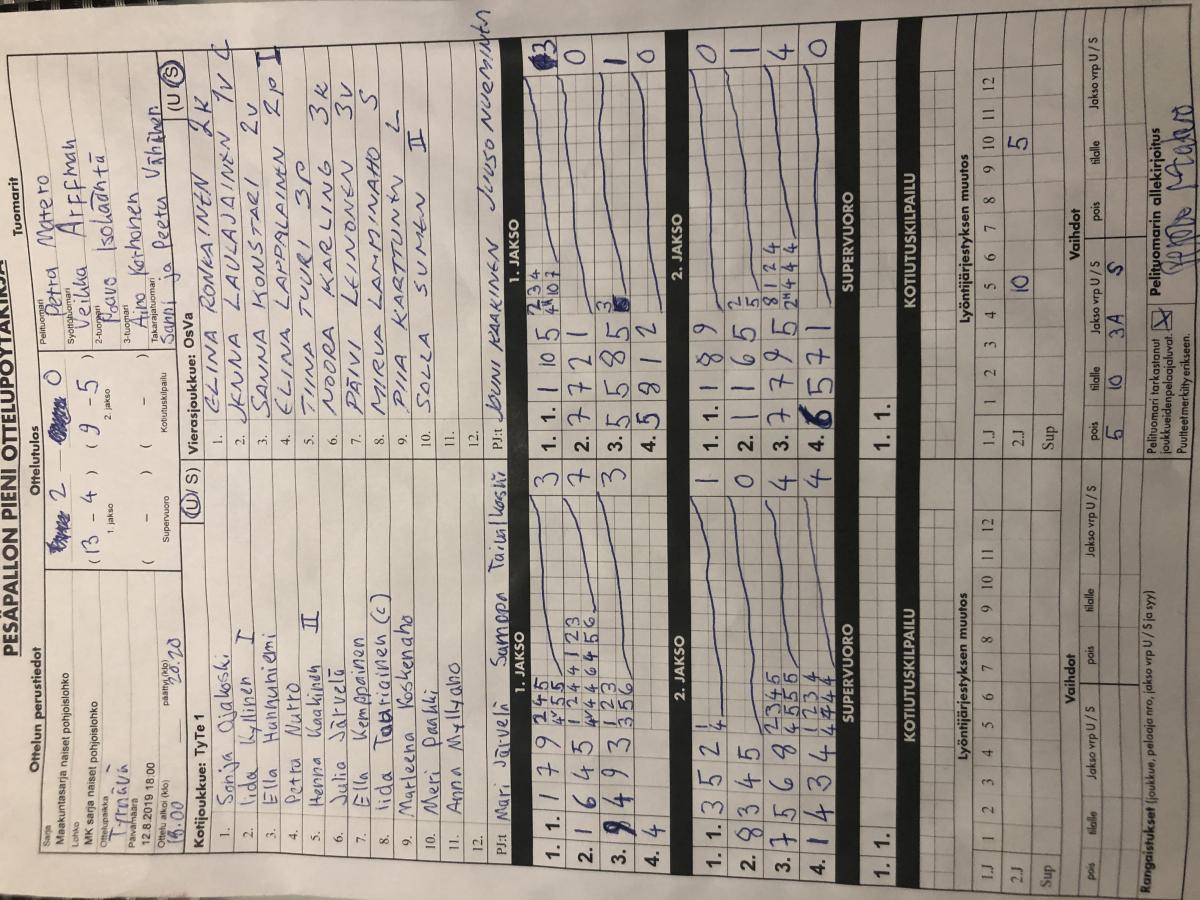 PESÄPALLON PIENI OTTELUPÖYTÄKIRJA
Ottelun perustiedot
Sarja
Maakuntasarja naiset pohjoislohko
Lohko
MK sarja naiset pohjoislohko
Ottelupaikka
Tyrnävä
Päivämäärä
12.8.2019 18:00
Ottelu alkoi (klo) päättyi (klo)
18.00 20.20
Ottelutulos
2 0
(13 - 4) (9 - 5)
1. jakso 2. jakso
( - ) ( - )
Supervuoro Kotiutuskilpailu
Tuomarit
Pelituomari
Petra Matero
Syöttötuomari
Veikka Arffman
2-tuomari
Paavo Isolahti
3-tuomari
Aino Karhonen
Takarajatuomari
Sanni ja Peetu Vähänen
Kotijoukkue: TyTe 1 (U/ S)
1. Sonja Ojakoski
2. Iida Kyllinen I
3. Ella Hanhuniemi
4. Petra Nuro
5. Henna Kaakinen II
6. Julia Järvelä
7. Ella Kemppainen
8. Iida (c)
9. Matleena Koskenaho
10. Meri Pankki
11. Anna Myllyaho
12.
PJ:t Mari Järvelä Sampo Taivalkoski
Vierasjoukkue: OsVa (U (S)
1. ELINA RONKAINEN 2K
2. JENNA LAULAJAINEN 1V C
3. SANNA KONSTARI 2V
4. ELINA LAPPALAINEN 2P I
5. TIINA TUURI 3P
6. NOORA KARLING 3K
7. PÄIVI LEINONEN 3V
8. MIRVA LAMMINAHO S
9. PIIA KARTTUNEN L
10. SALLA SUMEN II
11.
12.
PJ:t JOUNI KAAKINEN JUUSO NURMINEN
1. JAKSO
1. 1. 1 7 9 2 4 5 3
4 5 5
2. 1 6 4 5 1 2 4 4 1 2 3 7
4 4 4 6 4 5 6
3. 8 4 9 3 1 2 3 3
3 5 6
4. 4
1. JAKSO
1. 1. 1 10 5 2 3 4 3
4 10 7
2. 7 7 2 1 0
3. 5 5 8 5 3 1
4. 5 8 1 2 0
2. JAKSO
1. 1. 3 5 2 1 1
4
2. 8 3 4 5 0
3. 7 5 6 8 2 3 4 5 4
4 5 5 5
4. 1 4 3 4 1 2 3 4 4
4 4 4 4
2. JAKSO
1. 1. 1 8 9 0
2. 1 6 5 2 1
5
3. 7 7 9 5 8 1 2 4 4
2 4 4 4
4. 6 5 7 1 0
SUPERVUORO
1. 1.
SUPERVUORO
1. 1.
KOTIUTUSKILPAILU
KOTIUTUSKILPAILU
Lyöntijärjestyksen muutos
1.J 1 2 3 4 5 6 7 8 9 10 11 12
2.J
Sup
Lyöntijärjestyksen muutos
1.J 1 2 3 4 5 6 7 8 9 10 11 12
2.J 10 5
Sup
Vaihdot
pois tilalle Jakso vrp U / S pois tilalle Jakso vrp U / S
Vaihdot
pois tilalle Jakso vrp U / S pois tilalle Jakso vrp U / S
5 10 3A S
Rangaistukset (joukkue, pelaaja nro, jakso vrp U / S ja syy)
Pelituomari tarkastanut
joukkueidenpelaajaluvat. X
Puutteetmerkitty erikseen.
Pelituomarin allekirjoitus